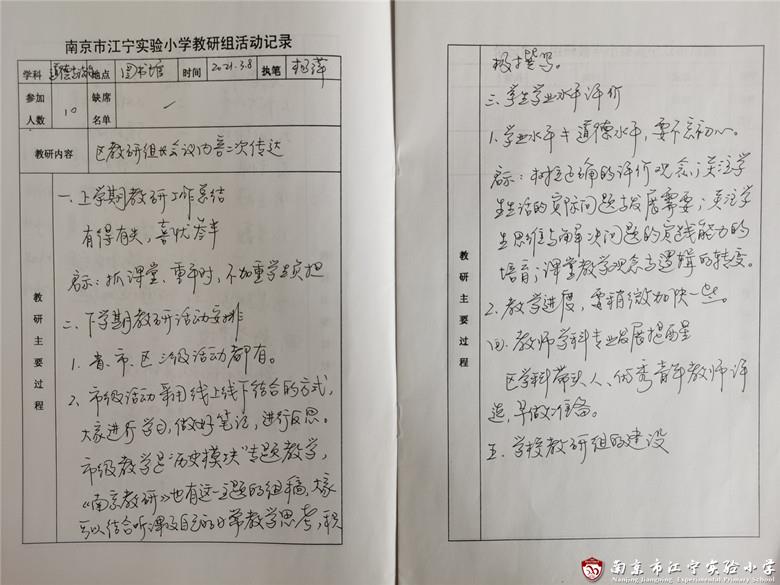 南京市江宁实验小学教研组活动记录
学科 道德与法治 地点 图书馆 时间 2021.3.8 执笔 杨萍
参加人数 10 缺席名单 —
教研内容 区教研组长会议内容二次传达
教研主要过程
一、上学期教研工作总结
有得有失，喜忧参半
启示：抓课堂、重平时，不加重学生负担
二、下学期教研活动安排
1. 省、市、区三级活动都有。
2. 市级活动采用线上线下结合的方式，
大家进行学习，做好笔记，进行反思。
市级教学是“历史模块”专题教学，
《南京教研》也有这一主题的组稿，大家
可以结合听课及自己的日常教学思考，积
极撰写。
教研主要过程
三、学生学业水平评价
1. 学业水平≠道德水平，要不忘初心。
启示：树立正确的评价观念；关注学
生生活的实际问题与发展需要；关注学
生思维与解决问题的实践能力的
培育；课堂教学观念与逻辑的转变。
2. 教学进度，要稍微加快一些。
四、教师学科专业发展提醒
区学科带头人、优秀青年教师评
选，早做准备。
五、学校教研组的建设
南京市江宁实验小学
Nanjing Jiangning Experimental Primary School